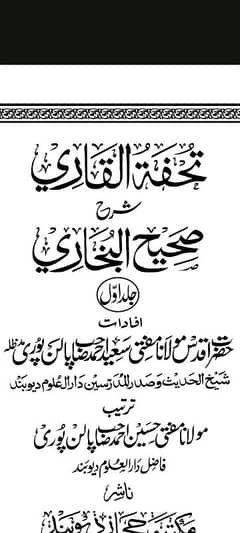 تحفة القاري
شرح
صحیح البخاري
جلد اوّل
افادات
حضرت اقدس مولانا مفتی سعید احمد صاحب پالن پوری مدظلہ
شیخ الحدیث و صدر المدرسین دارالعلوم دیوبند
ترتیب
مولانا مفتی حسین احمد صاحب پالن پوری
فاضل دارالعلوم دیوبند
ناشر
مکتبہ حجاز دیوبند